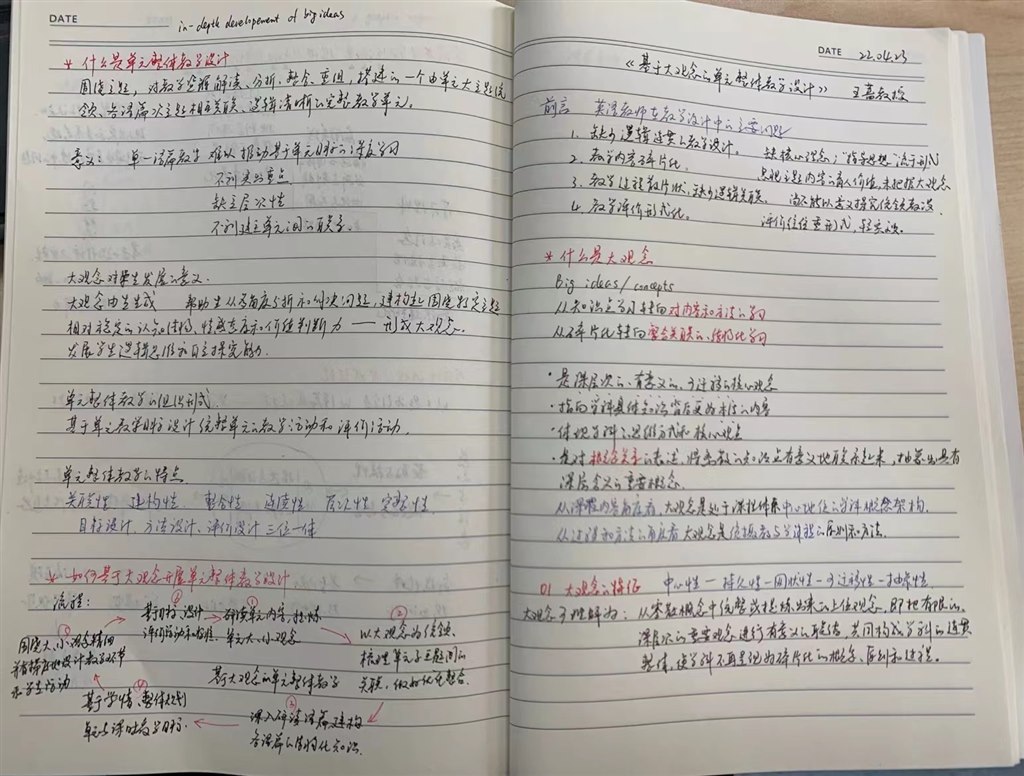 DATE
in-depth developement of big ideas
* 什么是单元整体教学设计
围绕主题，对教学资源解读、分析、整合、重组，搭建的一个由单元大主题统
领、各语篇次主题相互关联、逻辑清晰的完整教学单元。
意义：单一语篇教学 难以推动基于单元目标的深度学习
不利突出重点
缺主层次性
不利建立单元间的联系。
大观念对学生发展的意义：
大观念由生生成 帮助生从多角度分析和解决问题，建构起围绕单元主题
相对稳定的认知结构、情感态度和价值判断力 —— 形成大观念。
发展学生逻辑思维和自主探究能力.
单元整体教学的组织形式
基于单元教学目标设计统整单元的教学活动和评价活动.
单元整体教学的特点
关联性 建构性 整合性 连续性 层次性 实践性
目标设计、方法设计、评价设计 三位一体
* 如何基于大观念开展单元整体教学设计
流程：
⑤
基于目标，设计
评价活动和标准.
①
研读单元内容，提炼
单元大、小观念
②
以大观念为统领，
梳理单元子主题间的
关联，做好优化整合.
围绕大、小观念精细
并有梯度地设计教学环节
和学生活动
基于大观念的单元整体教学
③
深入研读语篇建构
各语篇的结构化知识.
④
基于学情，整体规划
单元与课时教学目标
DATE 22.04.23
《基于大观念的单元整体教学设计》 王蔷教授
前言 英语教师在教学设计中的主要问题
1. 缺少逻辑连贯的教学设计， 缺核心理念；"指导思想"流于形式
2. 教学内容碎片化. 忽视主题内容的育人价值，未把握大观念
3. 教学过程散片状，缺少逻辑关联. 尚不能以意义探究统领教学.
4. 教学评价形式化. 评价往往重形式，轻实效.
* 什么是大观念
Big ideas/concepts
从知识点学习转向对内容和方法的学习
从碎片化转向整合关联的、结构化学习
· 是深层次的、有意义的、可迁移的核心观念
· 指向学科具体知识背后更为本质的内容
· 体现学科的思维方式和核心观点
· 是对概念间关系的表达，将零散的知识点有意义地联系起来，抽象出具有
深层含义的重要概念.
从课程内容角度看，大观念是处于课程体系中心地位的学科概念架构.
从过程和方法的角度看 大观念是统摄教与学过程的原则和方法.
01 大观念的特征 中心性—持久性—网状性—可迁移性—抽象性
大观念可理解为：从零散概念中统整或提炼出来的上位观念，即把有限的、
深层次的重要观念进行有意义的联结，共同构成学科的连贯
整体，使学科不再呈现为碎片化的概念、原则和过程.